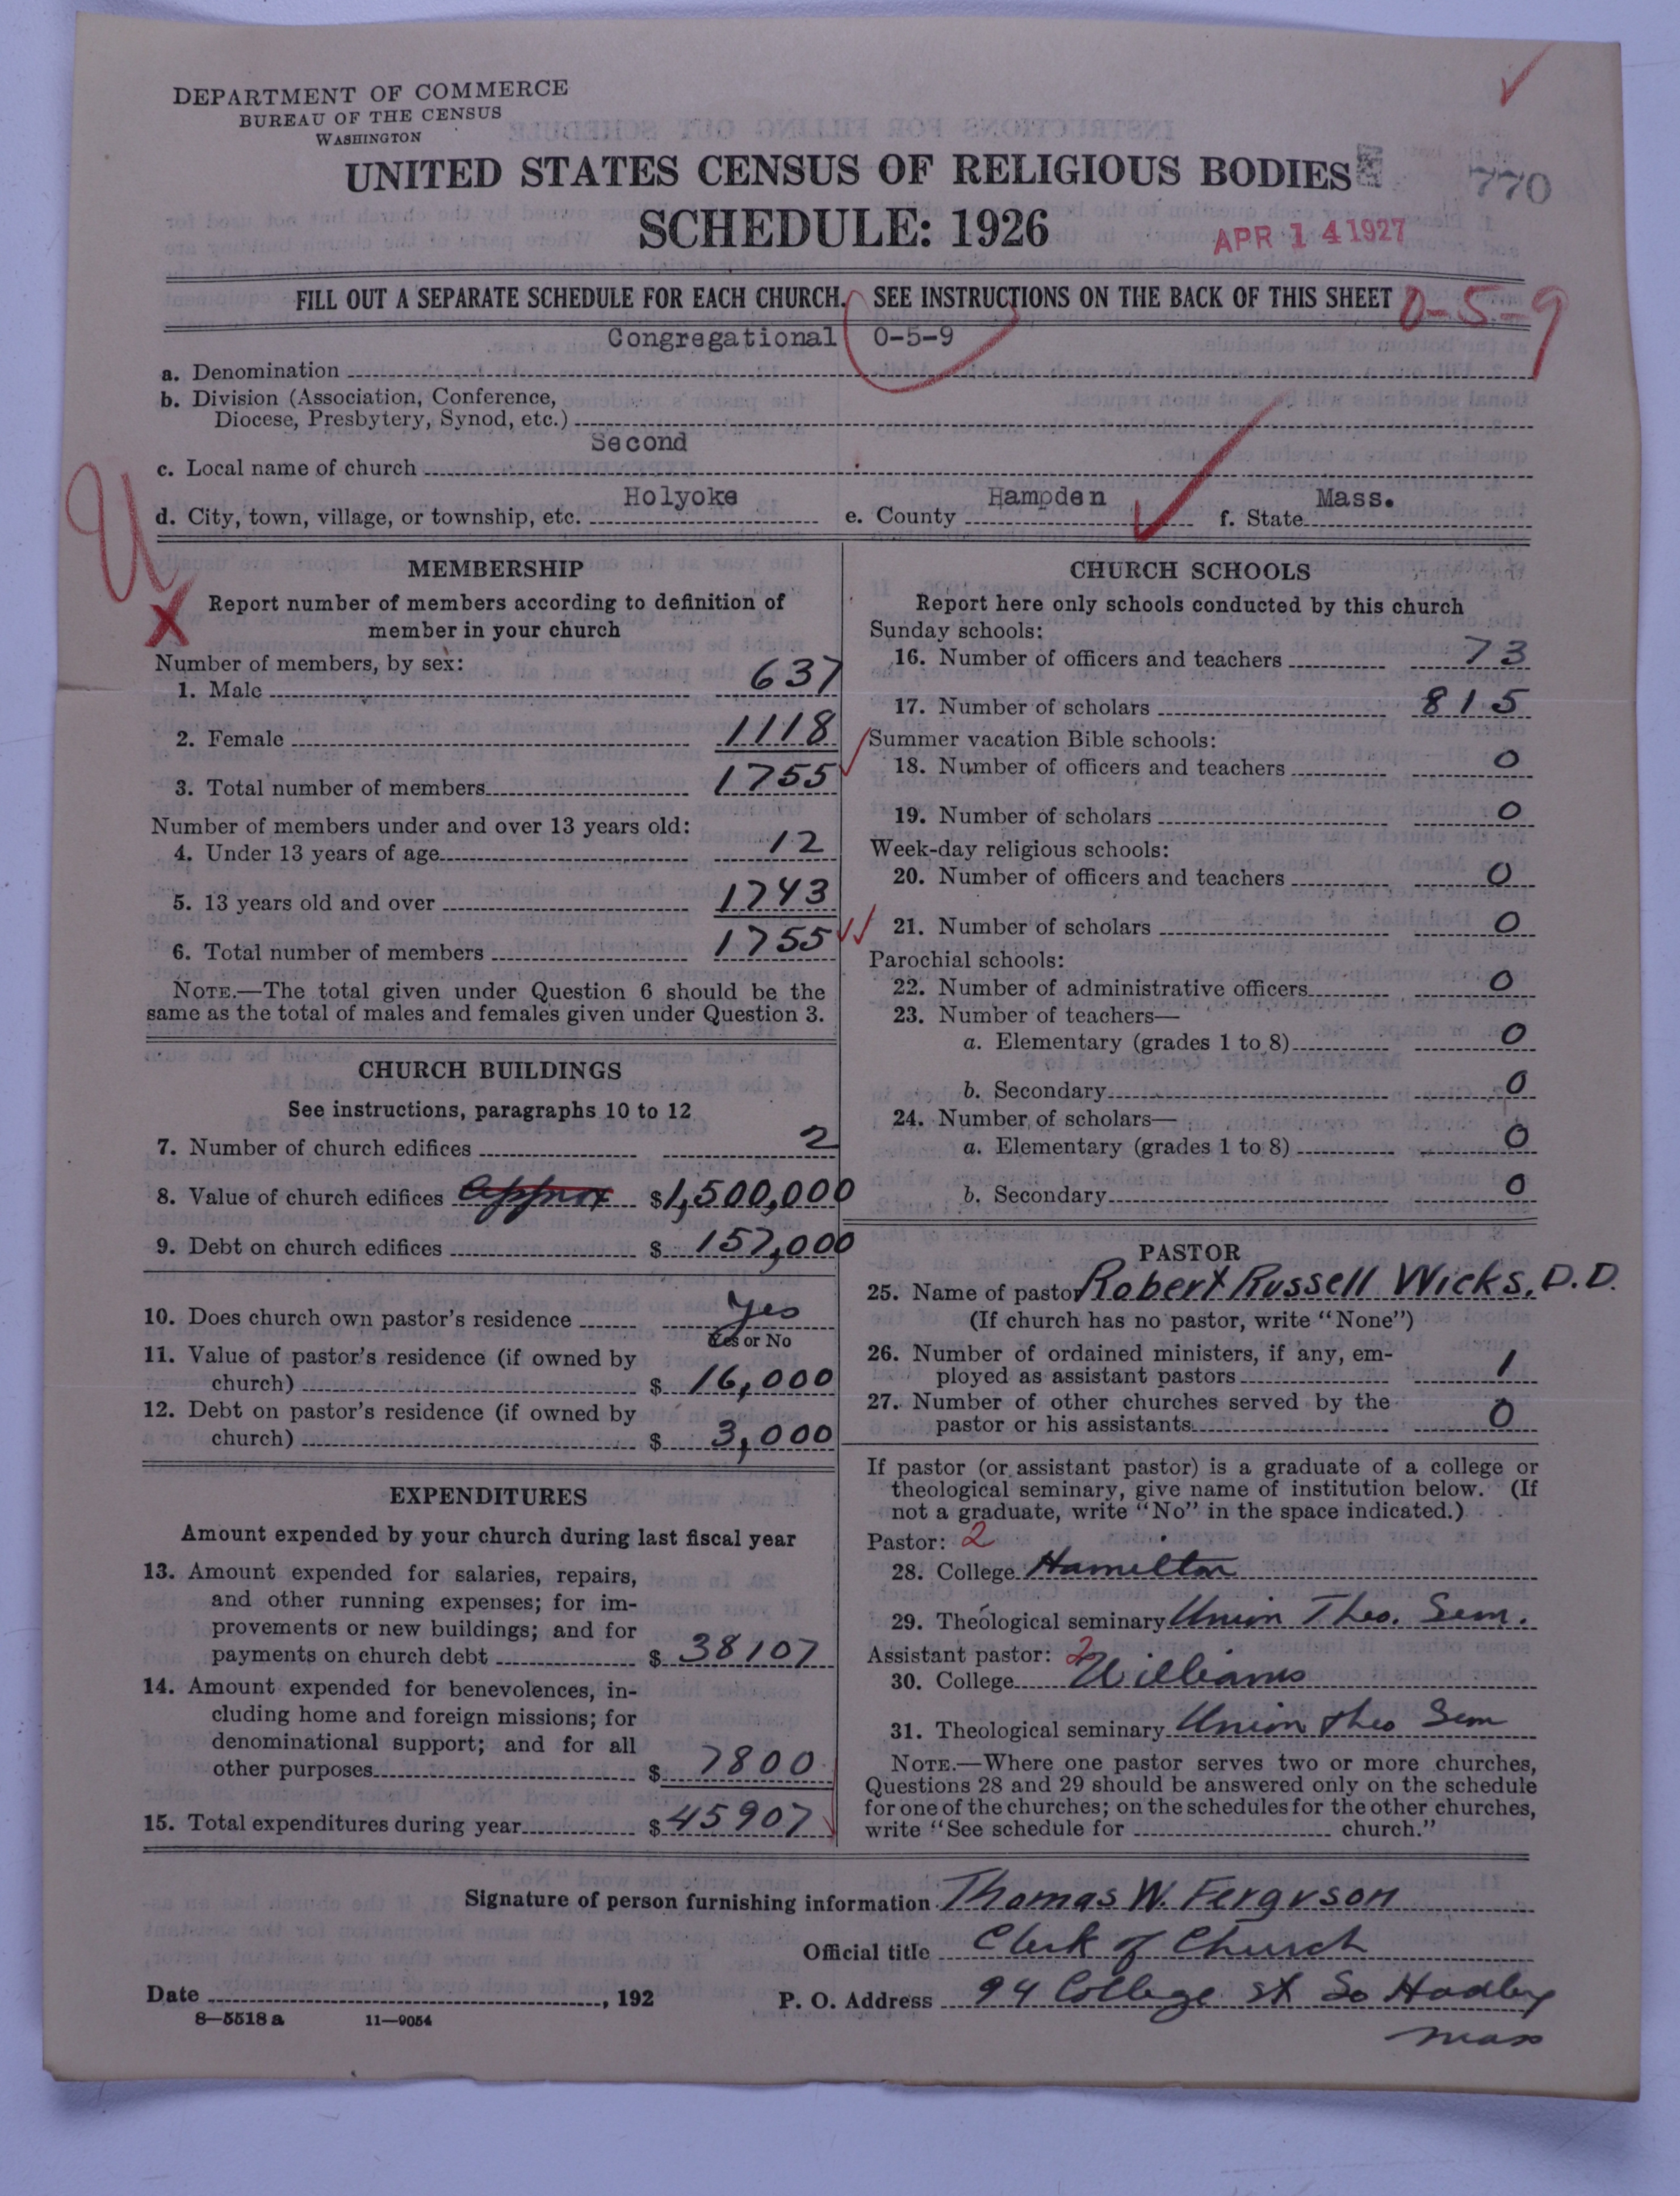 DEPARTMENT OF COMMERCE
BUREAU OF THE CENSUS
WASHINGTON
UNITED STATES CENSUS OF RELIGIOUS BODIES
770
SCHEDULE: 1926
APR 14 1927
FILL OUT A SEPARATE SCHEDULE FOR EACH CHURCH. SEE INSTRUCTIONS ON THE BACK OF THIS SHEET
0-5-9
Congregational 0-5-9
a. Denomination
b. Division (Association, Conference,
Diocese, Presbytery, Synod, etc.)
Second
c. Local name of church
Holyoke Hampden Mass.
d. City, town, village, or township, etc. e. County f. State
U
X
MEMBERSHIP
Report number of members according to definition of
member in your church
Number of members, by sex:
1. Male 637
2. Female 1118
3. Total number of members 1755
Number of members under and over 13 years old:
4. Under 13 years of age 12
5. 13 years old and over 1743
6. Total number of members 1755
NOTE.—The total given under Question 6 should be the
same as the total of males and females given under Question 3.
CHURCH BUILDINGS
See instructions, paragraphs 10 to 12
7. Number of church edifices 2
8. Value of church edifices approx $1,500,000
9. Debt on church edifices $ 157,000
10. Does church own pastor's residence Yes
Yes or No
11. Value of pastor's residence (if owned by
church) $ 16,000
12. Debt on pastor's residence (if owned by
church) $ 3,000
EXPENDITURES
Amount expended by your church during last fiscal year
13. Amount expended for salaries, repairs,
and other running expenses; for im-
provements or new buildings; and for
payments on church debt $ 38107
14. Amount expended for benevolences, in-
cluding home and foreign missions; for
denominational support; and for all
other purposes $ 7800
15. Total expenditures during year $ 45907
CHURCH SCHOOLS
Report here only schools conducted by this church
Sunday schools:
16. Number of officers and teachers 73
17. Number of scholars 815
Summer vacation Bible schools:
18. Number of officers and teachers 0
19. Number of scholars 0
Week-day religious schools:
20. Number of officers and teachers 0
21. Number of scholars 0
Parochial schools:
22. Number of administrative officers 0
23. Number of teachers—
a. Elementary (grades 1 to 8) 0
b. Secondary 0
24. Number of scholars—
a. Elementary (grades 1 to 8) 0
b. Secondary 0
PASTOR
25. Name of pastor Robert Russell Wicks, D.D.
(If church has no pastor, write "None")
26. Number of ordained ministers, if any, em-
ployed as assistant pastors 1
27. Number of other churches served by the
pastor or his assistants 0
If pastor (or assistant pastor) is a graduate of a college or
theological seminary, give name of institution below. (If
not a graduate, write "No" in the space indicated.)
Pastor: 2
28. College Hamilton
29. Theological seminary Union Theo. Sem.
Assistant pastor: 2
30. College Williams
31. Theological seminary Union Theo Sem
NOTE.—Where one pastor serves two or more churches,
Questions 28 and 29 should be answered only on the schedule
for one of the churches; on the schedules for the other churches,
write "See schedule for church."
Signature of person furnishing information Thomas W. Ferguson
Official title Clerk of Church
Date , 192 P. O. Address 94 College St So Hadley
Mass
8—5518 a 11—9054